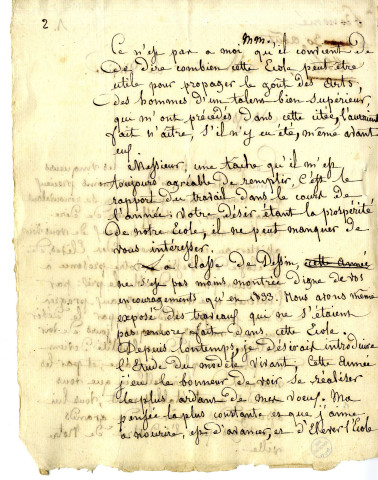 2
Mm.
Ce n'est pas a moi qu'il convient de
de dire combien cette Ecole peut être
utile pour propager le goût des Arts,
des hommes d'un talent bien Supérieur,
qui m'ont précédés dans cette citée, l'auraient
fait n'aître, s'il n'y eu été, même avant
eux.
Messieur, une tache qu'il m'est
toujours agréable de remplir, C'est le
rapport du travail dans le court de
l'année: Votre Désir étant la prospérité
de notre Ecole, il ne peut manquer de
vous intéresser.
La classe de Dessin, cette Année
ne s'est pas moins montrée digne de vos
encouragements qu'en 1833. Nous avons même
exposé des travaux qui ne s'étaient
pas encore fait dans cette Ecole.
Depuis longtemps, je désirais introduire
l'Etude du modèle Vivant, Cette Année
j'eu le bonneur de voir se realiser
le plus ardans de mes voeux. Ma
pensée la plus constante et que j'aime
a nourire, est d'avancer, et d'Ellever l'Ecole